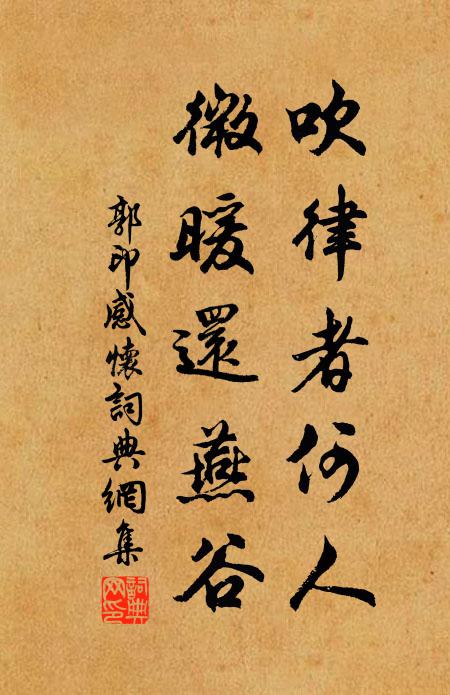 吹律者何人
微暖還燕谷
郭印感懷詞典網集
詞典網印